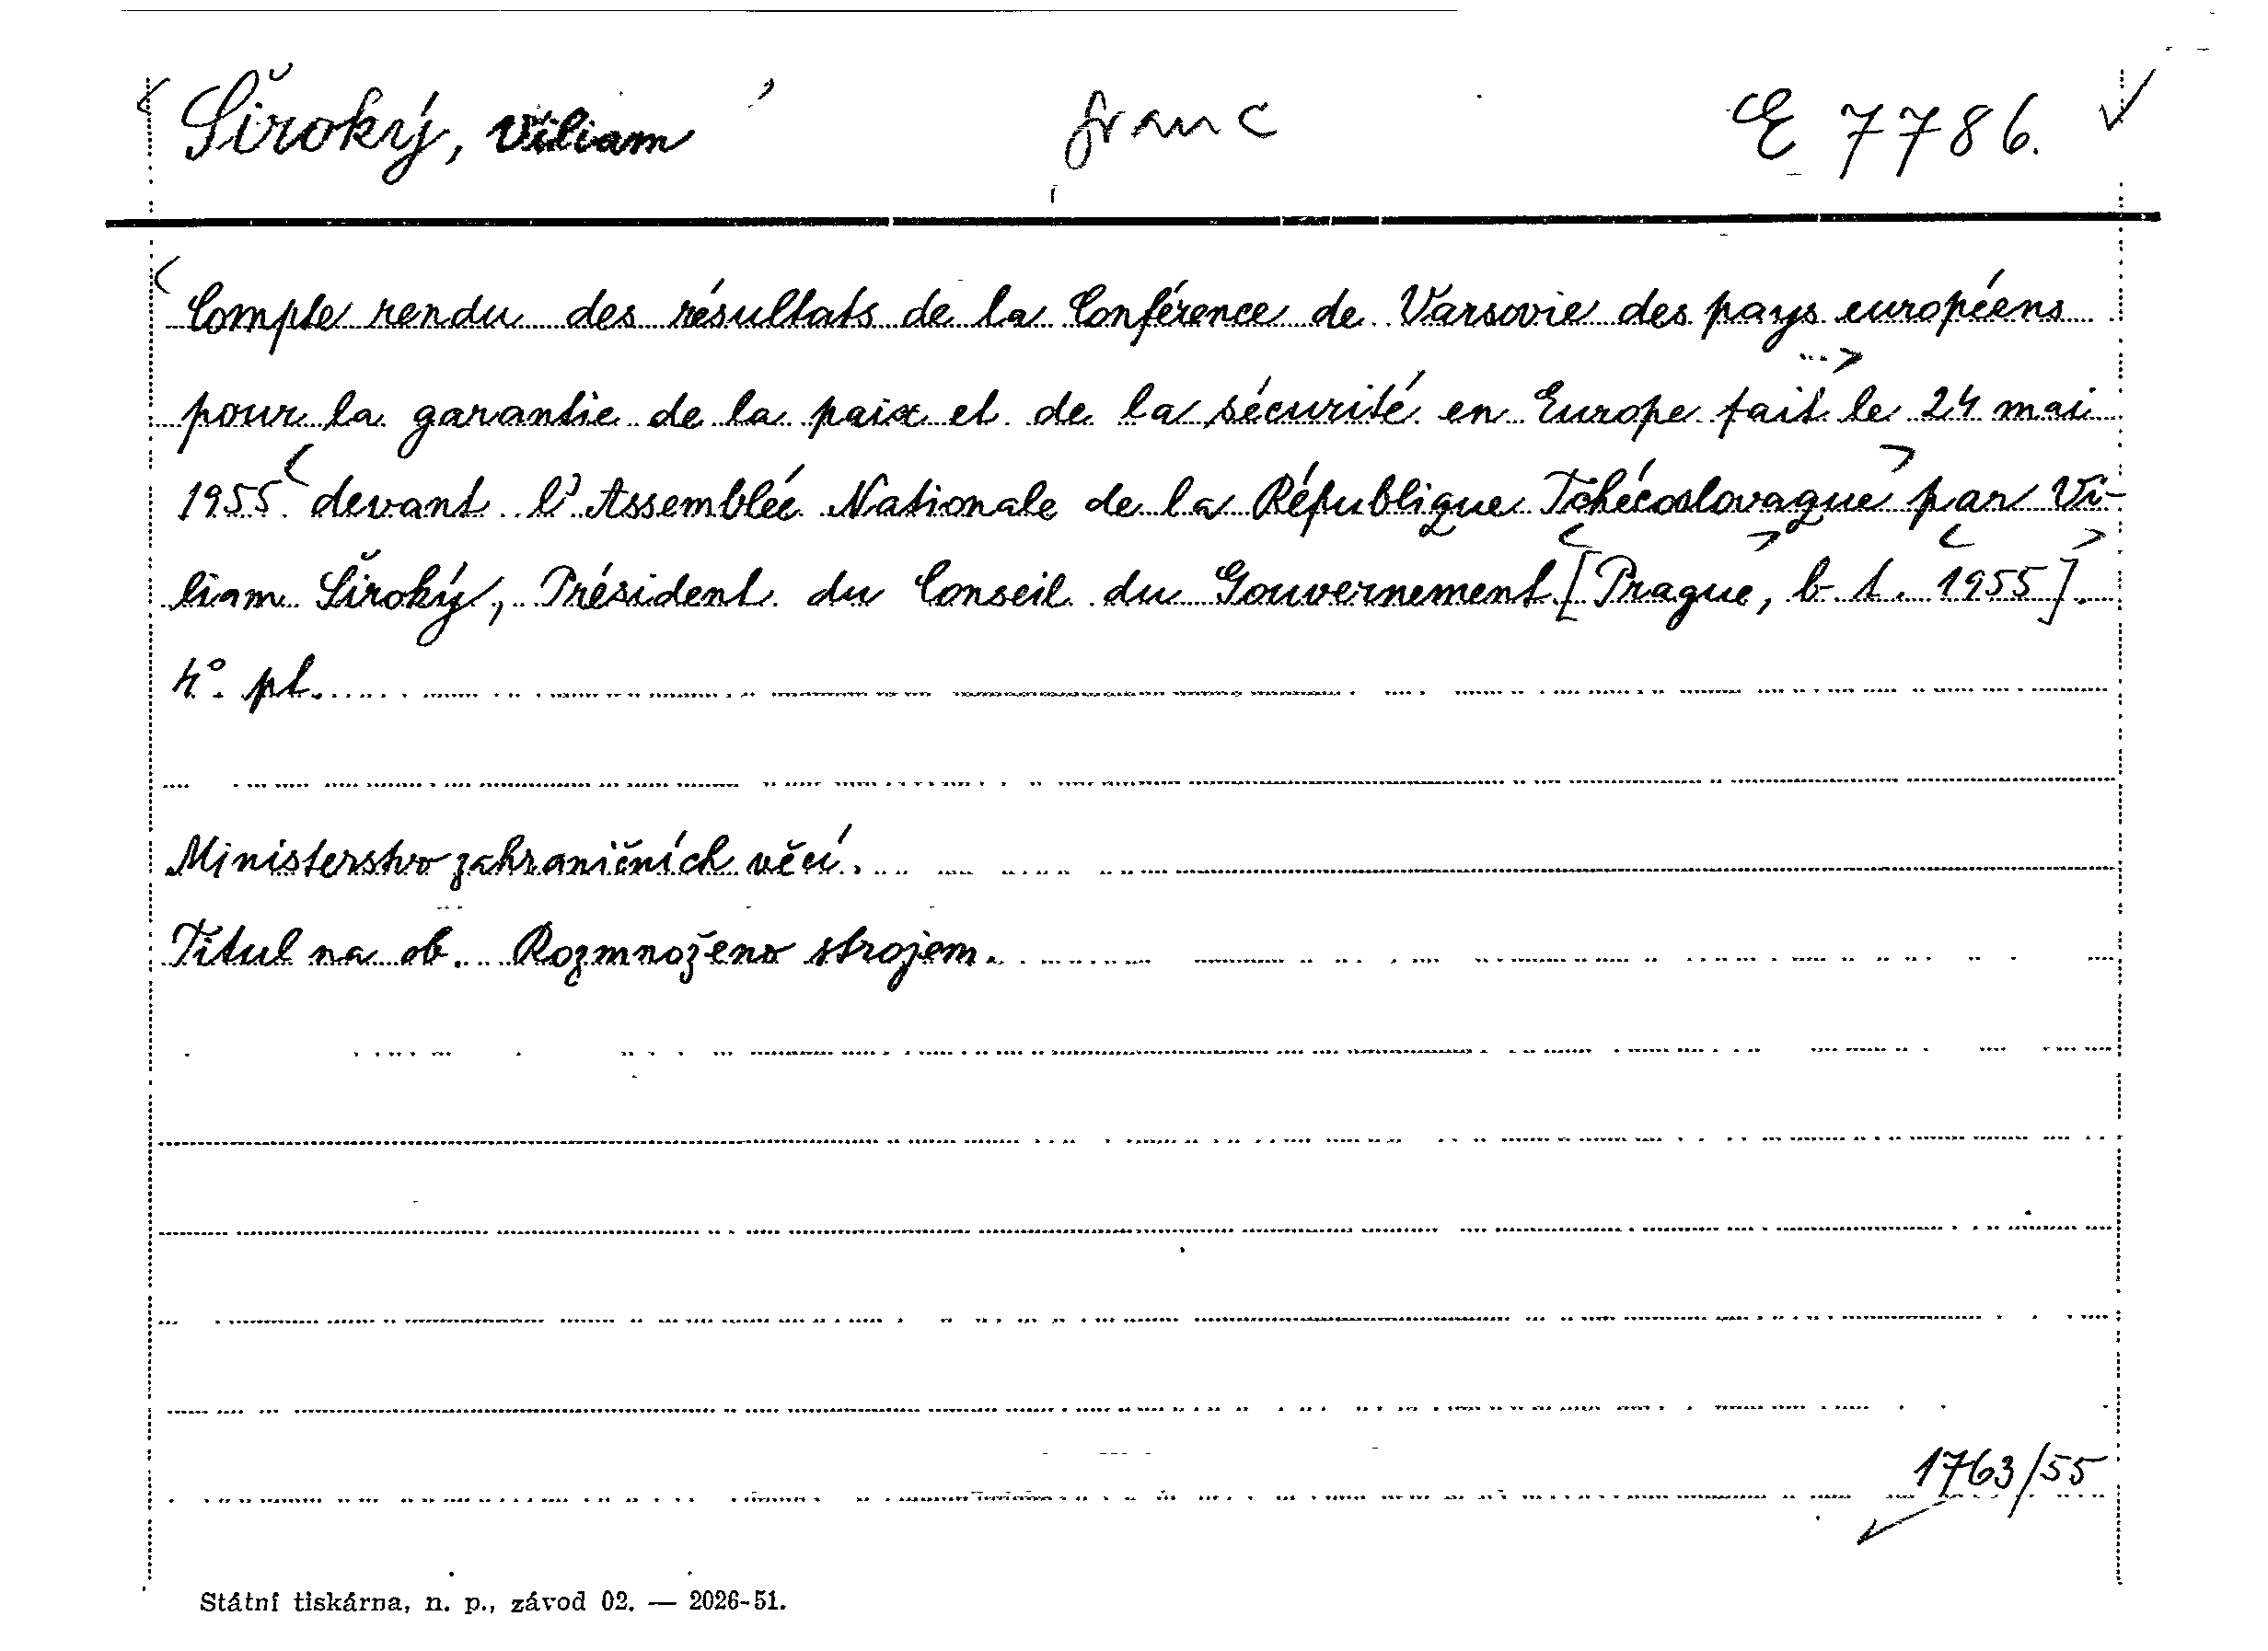 Široký, Viliam franc E 7786.
Compte rendu des résultats de la Conférence de Varsovie des pays européens
pour la garantie de la paix et de la sécurité en Europe fait le 24 mai
1955 devant l'Assemblée Nationale de la République Tchécoslovaque par Vi-
liam Široký, Président du Conseil du Gouvernement [Prague, b. t. 1955].
4°. pt.
Ministerstvo zahraničních věcí.
Titul na ob. Rozmnoženo strojem.
1763/55
Státní tiskárna, n. p., závod 02. — 2026-51.